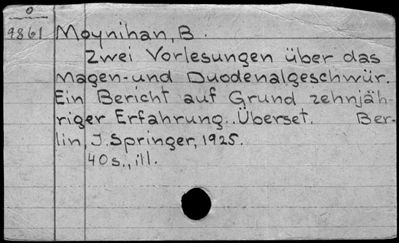 0
9861 Moynihan, B.
Zwei Vorlesungen über das
Magen- und Duodenalgeschwür.
Ein Bericht auf Grund zehnjäh-
riger Erfahrung. Überset. Ber-
lin, J. Springer, 1925.
40 s., ill.